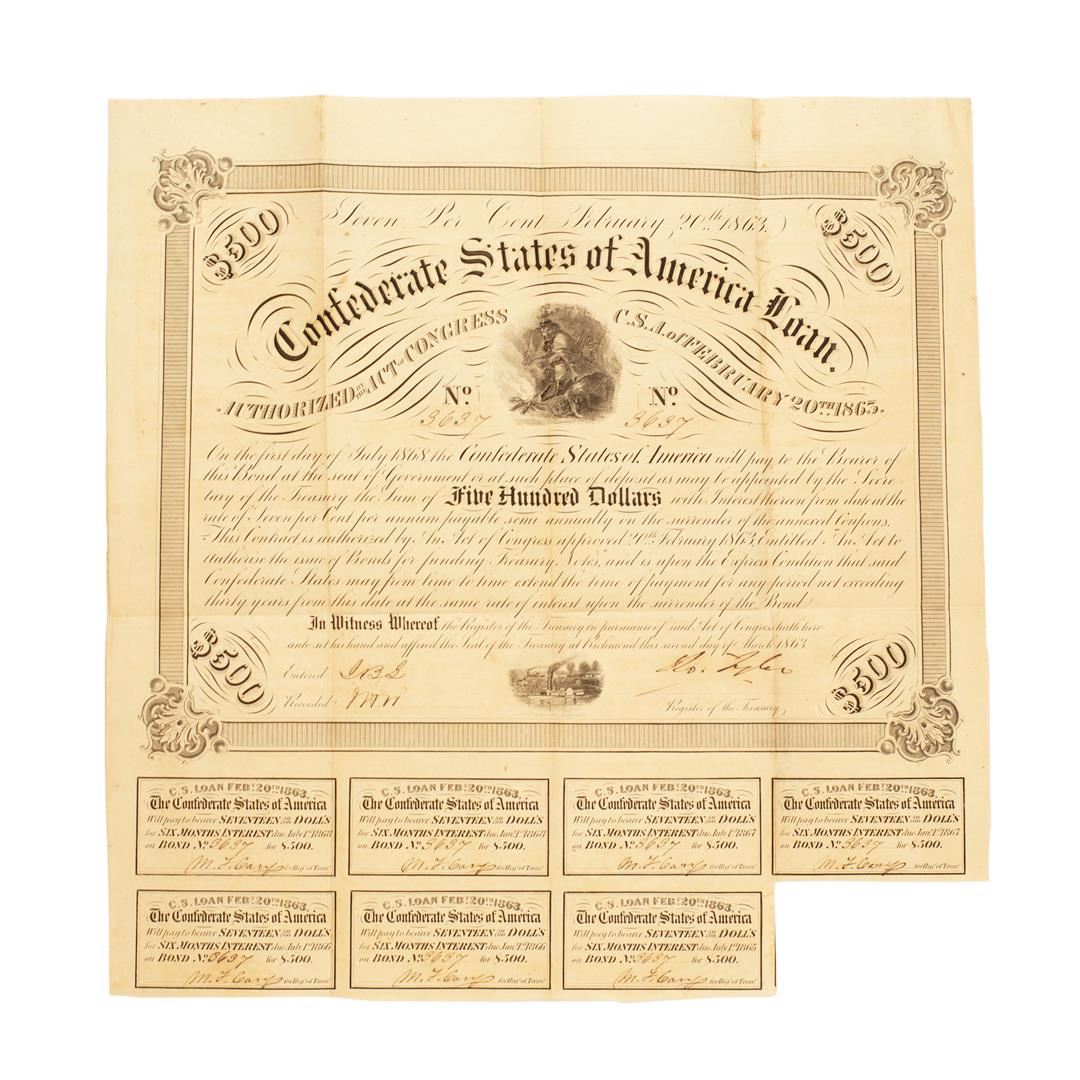 Seven Per Cent February 20th 1863.
$500
$500
Confederate States of America Loan.
AUTHORIZED BY THE ACT OF CONGRESS
C.S.A. of FEBRUARY 20TH 1863.
No. No.
3637 3637
On the first day of July 1868 the Confederate States of America will pay to the Bearer of
this Bond at the seat of Government or at such place of deposit as may be appointed by the Secre
tary of the Treasury the Sum of Five Hundred Dollars with Interest thereon from date at the
rate of Seven per Cent per annum payable semi annually on the surrender of the annexed Coupons.
This Contract is authorized by An Act of Congress approved 20th February 1863, Entitled "An Act to
authorise the issue of Bonds for funding Treasury Notes," and is upon the Express Condition that said
Confederate States may from time to time extend the time of payment for any period not exceeding
thirty years from this date at the same rate of interest upon the surrender of the Bond
In Witness Whereof, the Register of the Treasury in pursuance of said Act of Congress hath here
unto set his hand and affixed the Seal of the Treasury at Richmond this second day of March 1863.
$500
$500
Entered
Ro. Tyler
Recorded
Register of the Treasury
C.S. LOAN FEB. 20TH 1863.
The Confederate States of America
Will pay to bearer SEVENTEEN DOLL'S
for SIX MONTHS INTEREST due July 1st 1868
on BOND No. 3637 for $.500.
for Reg'r of Treas'
C.S. LOAN FEB. 20TH 1863.
The Confederate States of America
Will pay to bearer SEVENTEEN DOLL'S
for SIX MONTHS INTEREST due Jan'y 1st 1868
on BOND No. 3637 for $.500.
for Reg'r of Treas'
C.S. LOAN FEB. 20TH 1863.
The Confederate States of America
Will pay to bearer SEVENTEEN DOLL'S
for SIX MONTHS INTEREST due July 1st 1867
on BOND No. 3637 for $.500.
for Reg'r of Treas'
C.S. LOAN FEB. 20TH 1863.
The Confederate States of America
Will pay to bearer SEVENTEEN DOLL'S
for SIX MONTHS INTEREST due Jan'y 1st 1867
on BOND No. 3637 for $.500.
for Reg'r of Treas'
C.S. LOAN FEB. 20TH 1863.
The Confederate States of America
Will pay to bearer SEVENTEEN DOLL'S
for SIX MONTHS INTEREST due July 1st 1866
on BOND No. 3637 for $.500.
for Reg'r of Treas'
C.S. LOAN FEB. 20TH 1863.
The Confederate States of America
Will pay to bearer SEVENTEEN DOLL'S
for SIX MONTHS INTEREST due Jan'y 1st 1866
on BOND No. 3637 for $.500.
for Reg'r of Treas'
C.S. LOAN FEB. 20TH 1863.
The Confederate States of America
Will pay to bearer SEVENTEEN DOLL'S
for SIX MONTHS INTEREST due July 1st 1865
on BOND No. 3637 for $.500.
for Reg'r of Treas'